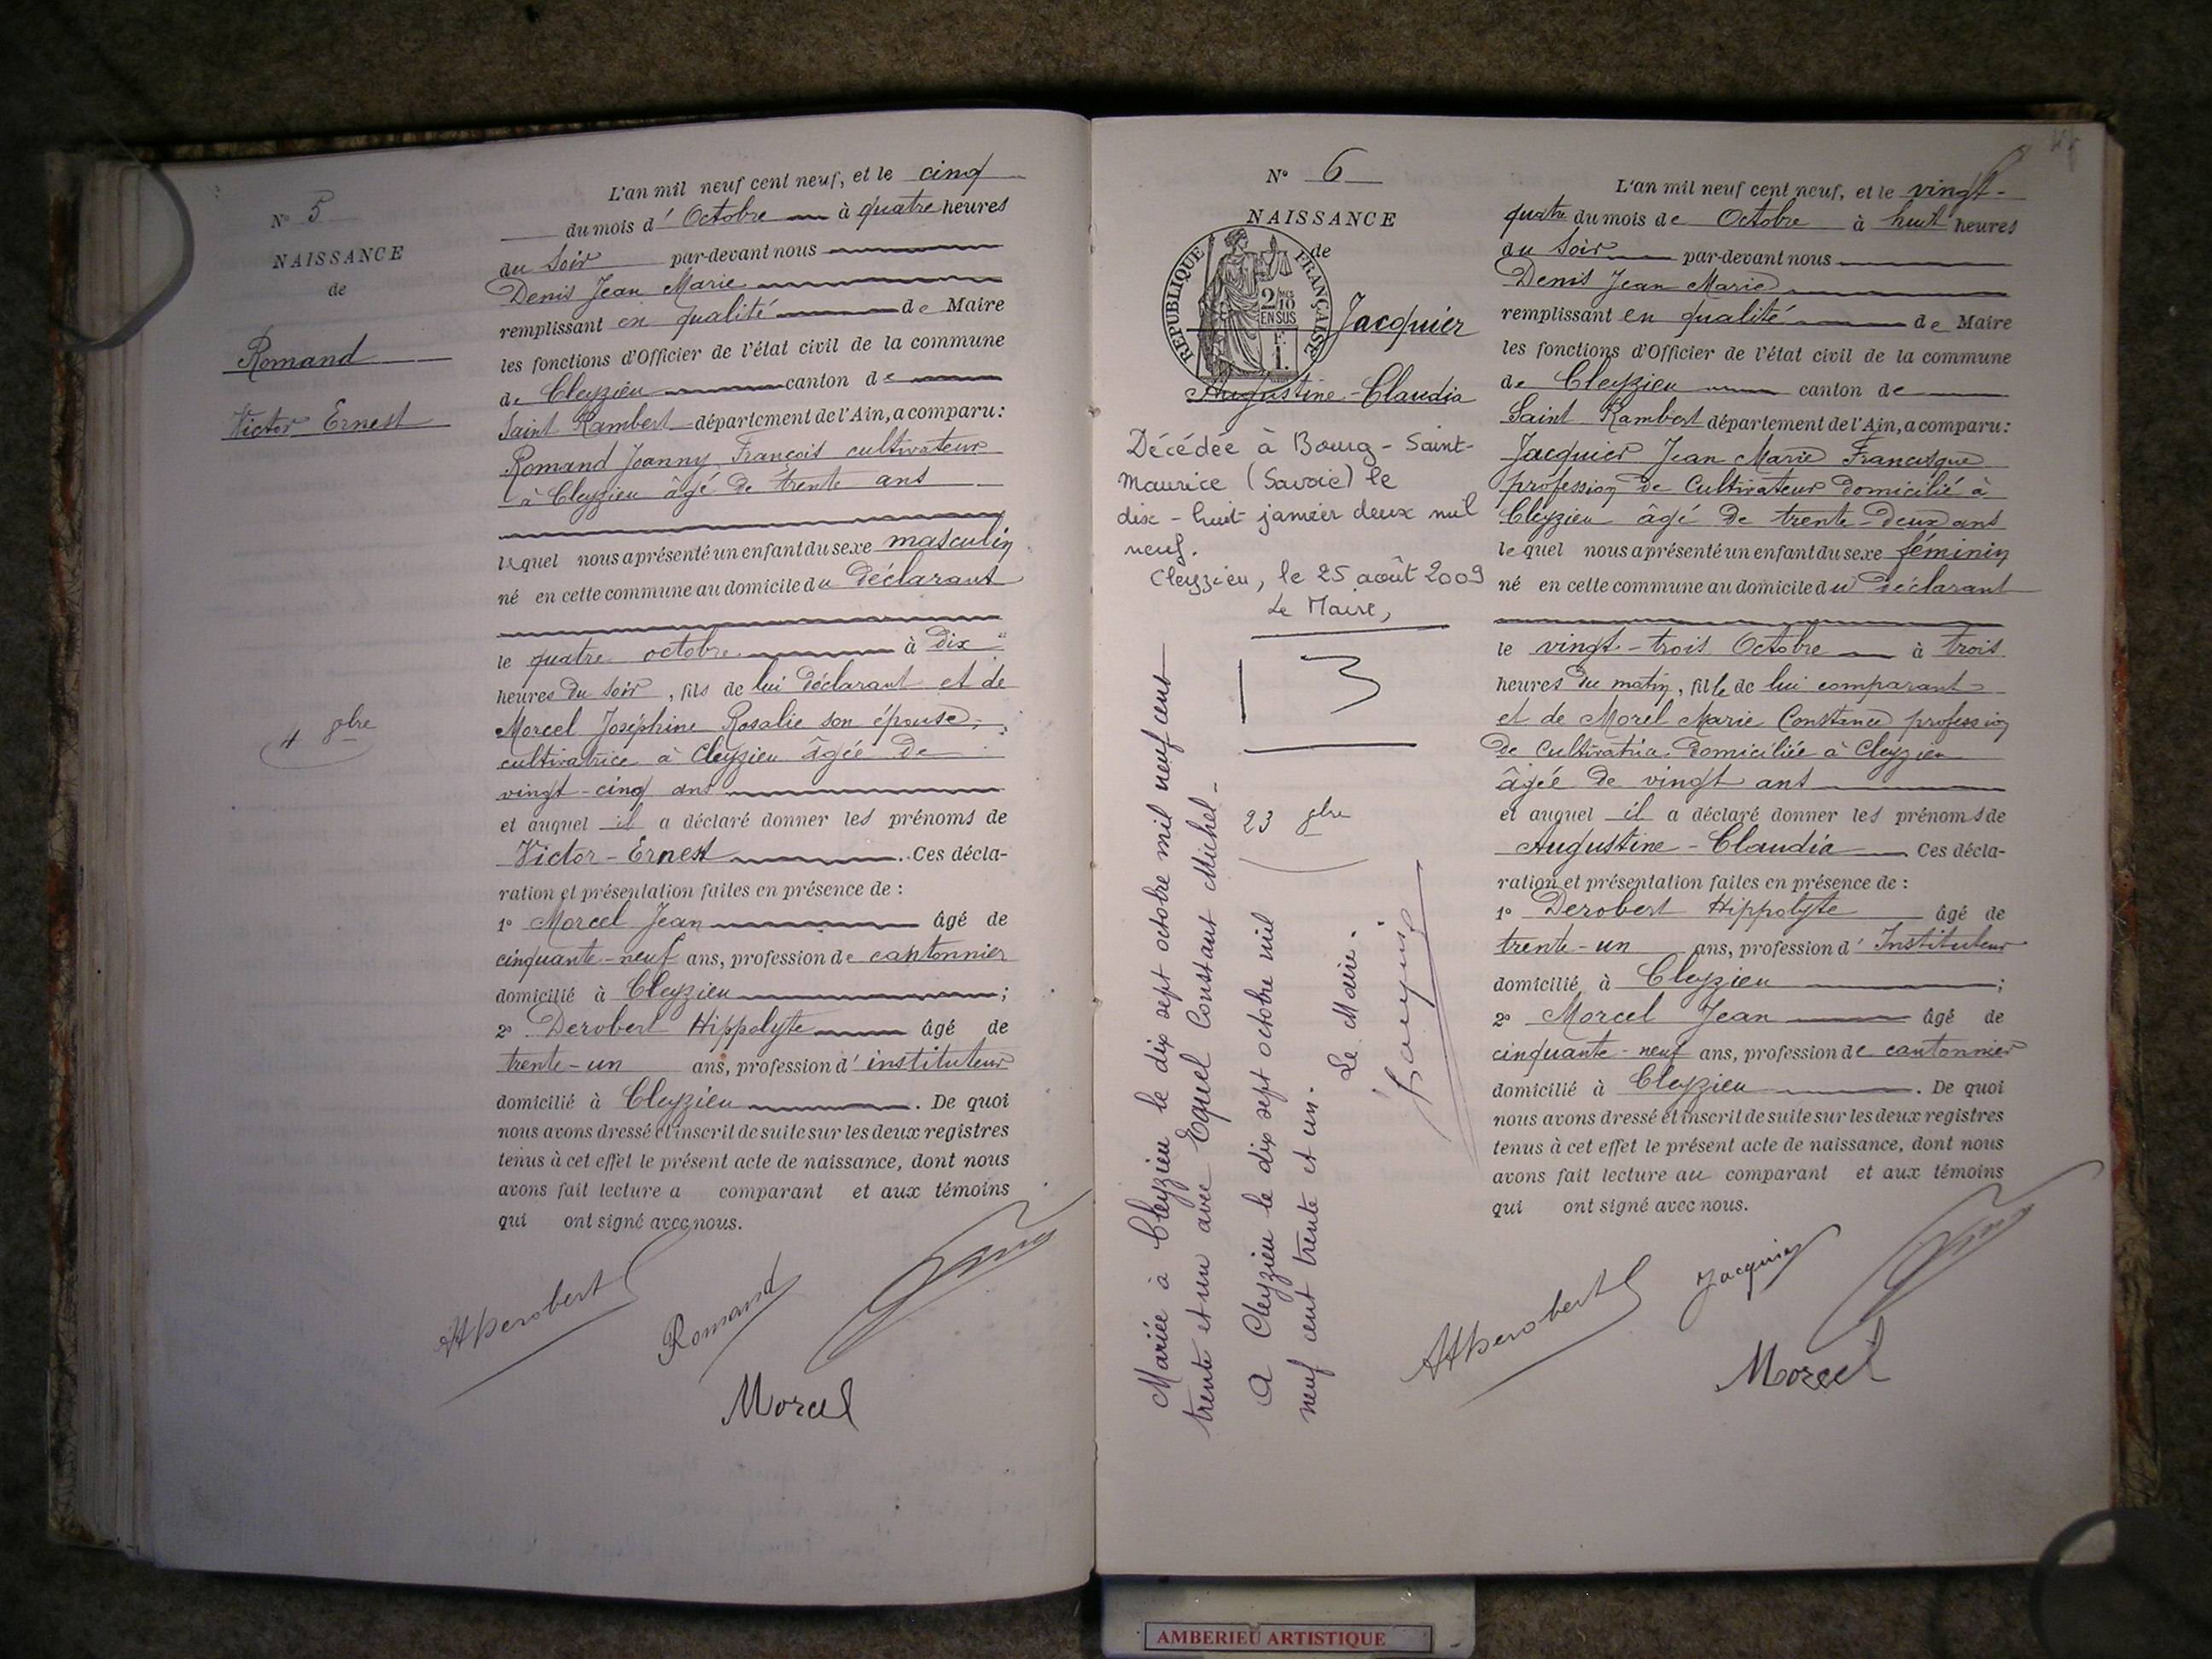 N° 5
NAISSANCE
de
Romand
Victor Ernest
4 8bre
L'an mil neuf cent neuf, et le cinq
du mois d' Octobre à quatre heures
du Soir par-devant nous
Denis Jean Marie
remplissant en qualité de Maire
les fonctions d'Officier de l'état civil de la commune
de Cleyzieu canton de
Saint Rambert département de l'Ain, a comparu:
Romand Joanny François cultivateur
à Cleyzieu âgé de trente ans
lequel nous a présenté un enfant du sexe masculin
né en cette commune au domicile du déclarant
le quatre octobre à dix
heures du soir, fils de lui déclarant et de
Morcel Joséphine Rosalie son épouse,
cultivatrice à Cleyzieu âgée de
vingt-cinq ans
et auquel il a déclaré donner les prénoms de
Victor-Ernest. Ces décla-
ration et présentation faites en présence de :
1° Morcel Jean âgé de
cinquante-neuf ans, profession de cantonnier
domicilié à Cleyzieu ;
2° Derobert Hippolyte âgé de
trente-un ans, profession d' instituteur
domicilié à Cleyzieu. De quoi
nous avons dressé et inscrit de suite sur les deux registres
tenus à cet effet le présent acte de naissance, dont nous
avons fait lecture a comparant et aux témoins
qui ont signé avec nous.
HDerobert
Romand
Morcel
N° 6
NAISSANCE
de
REPUBLIQUE FRANÇAISE
2/10
EN SUS
F.
1.
Jacquier
Augustine-Claudia
Décédée à Bourg-Saint-
Maurice (Savoie) le
dix-huit janvier deux mil
neuf.
Cleyzieu, le 25 août 2009
Le Maire,
23 8bre
Mariée à Cleyzieu le dix sept octobre mil neuf cent
trente et un avec Equel Constant Michel-
A Cleyzieu le dix sept octobre mil
neuf cent trente et un. Le Maire.
L'an mil neuf cent neuf, et le vingt-
quatre du mois de Octobre à huit heures
du Soir par-devant nous
Denis Jean Marie
remplissant en qualité de Maire
les fonctions d'Officier de l'état civil de la commune
de Cleyzieu canton de
Saint Rambert département de l'Ain, a comparu:
Jacquier Jean Marie Francisque
profession de Cultivateur domicilié à
Cleyzieu âgé de trente-deux ans
lequel nous a présenté un enfant du sexe féminin
né en cette commune au domicile du déclarant
le vingt-trois Octobre à trois
heures du matin, fille de lui comparant
et de Morel Marie Constance profession
de Cultivatrice domiciliée à Cleyzieu
âgée de vingt ans
et auquel il a déclaré donner les prénoms de
Augustine-Claudia Ces décla-
ration et présentation faites en présence de :
1° Derobert Hippolyte âgé de
trente-un ans, profession d' Instituteur
domicilié à Cleyzieu ;
2° Morcel Jean âgé de
cinquante-neuf ans, profession de cantonnier
domicilié à Cleyzieu. De quoi
nous avons dressé et inscrit de suite sur les deux registres
tenus à cet effet le présent acte de naissance, dont nous
avons fait lecture au comparant et aux témoins
qui ont signé avec nous.
HDerobert
Jacquier
Morcel
AMBERIEU ARTISTIQUE